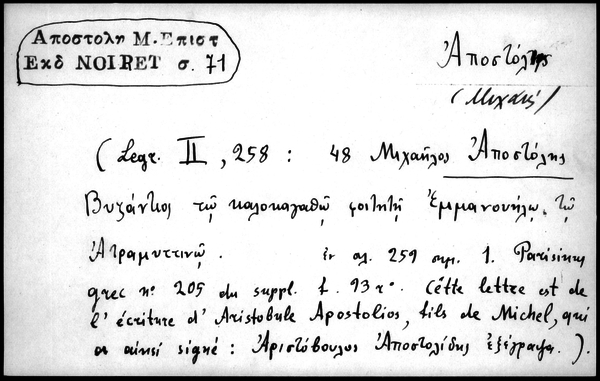 Αποστολη Μ. Επιστ
Εκδ NOIRET σ. 71
Ἀποστόλης
(Μιχαήλ)
(Legr. II, 258 : 48 Μιχαῆλος Ἀποστόλης
Βυζάντιος τῷ καλοκαγαθῷ φοιτητῇ Ἐμμανουήλῳ τῷ
Ἀτραμυττινῷ. ἐν σελ. 259 σημ. 1. Parisinus
grec nº 205 du suppl. f. 93 rº. Cette lettre est de
l'écriture d'Aristobule Apostolios, fils de Michel, qui
a ainsi signé : Ἀριστόβουλος Ἀποστολίδης ἐξέγραψα.).